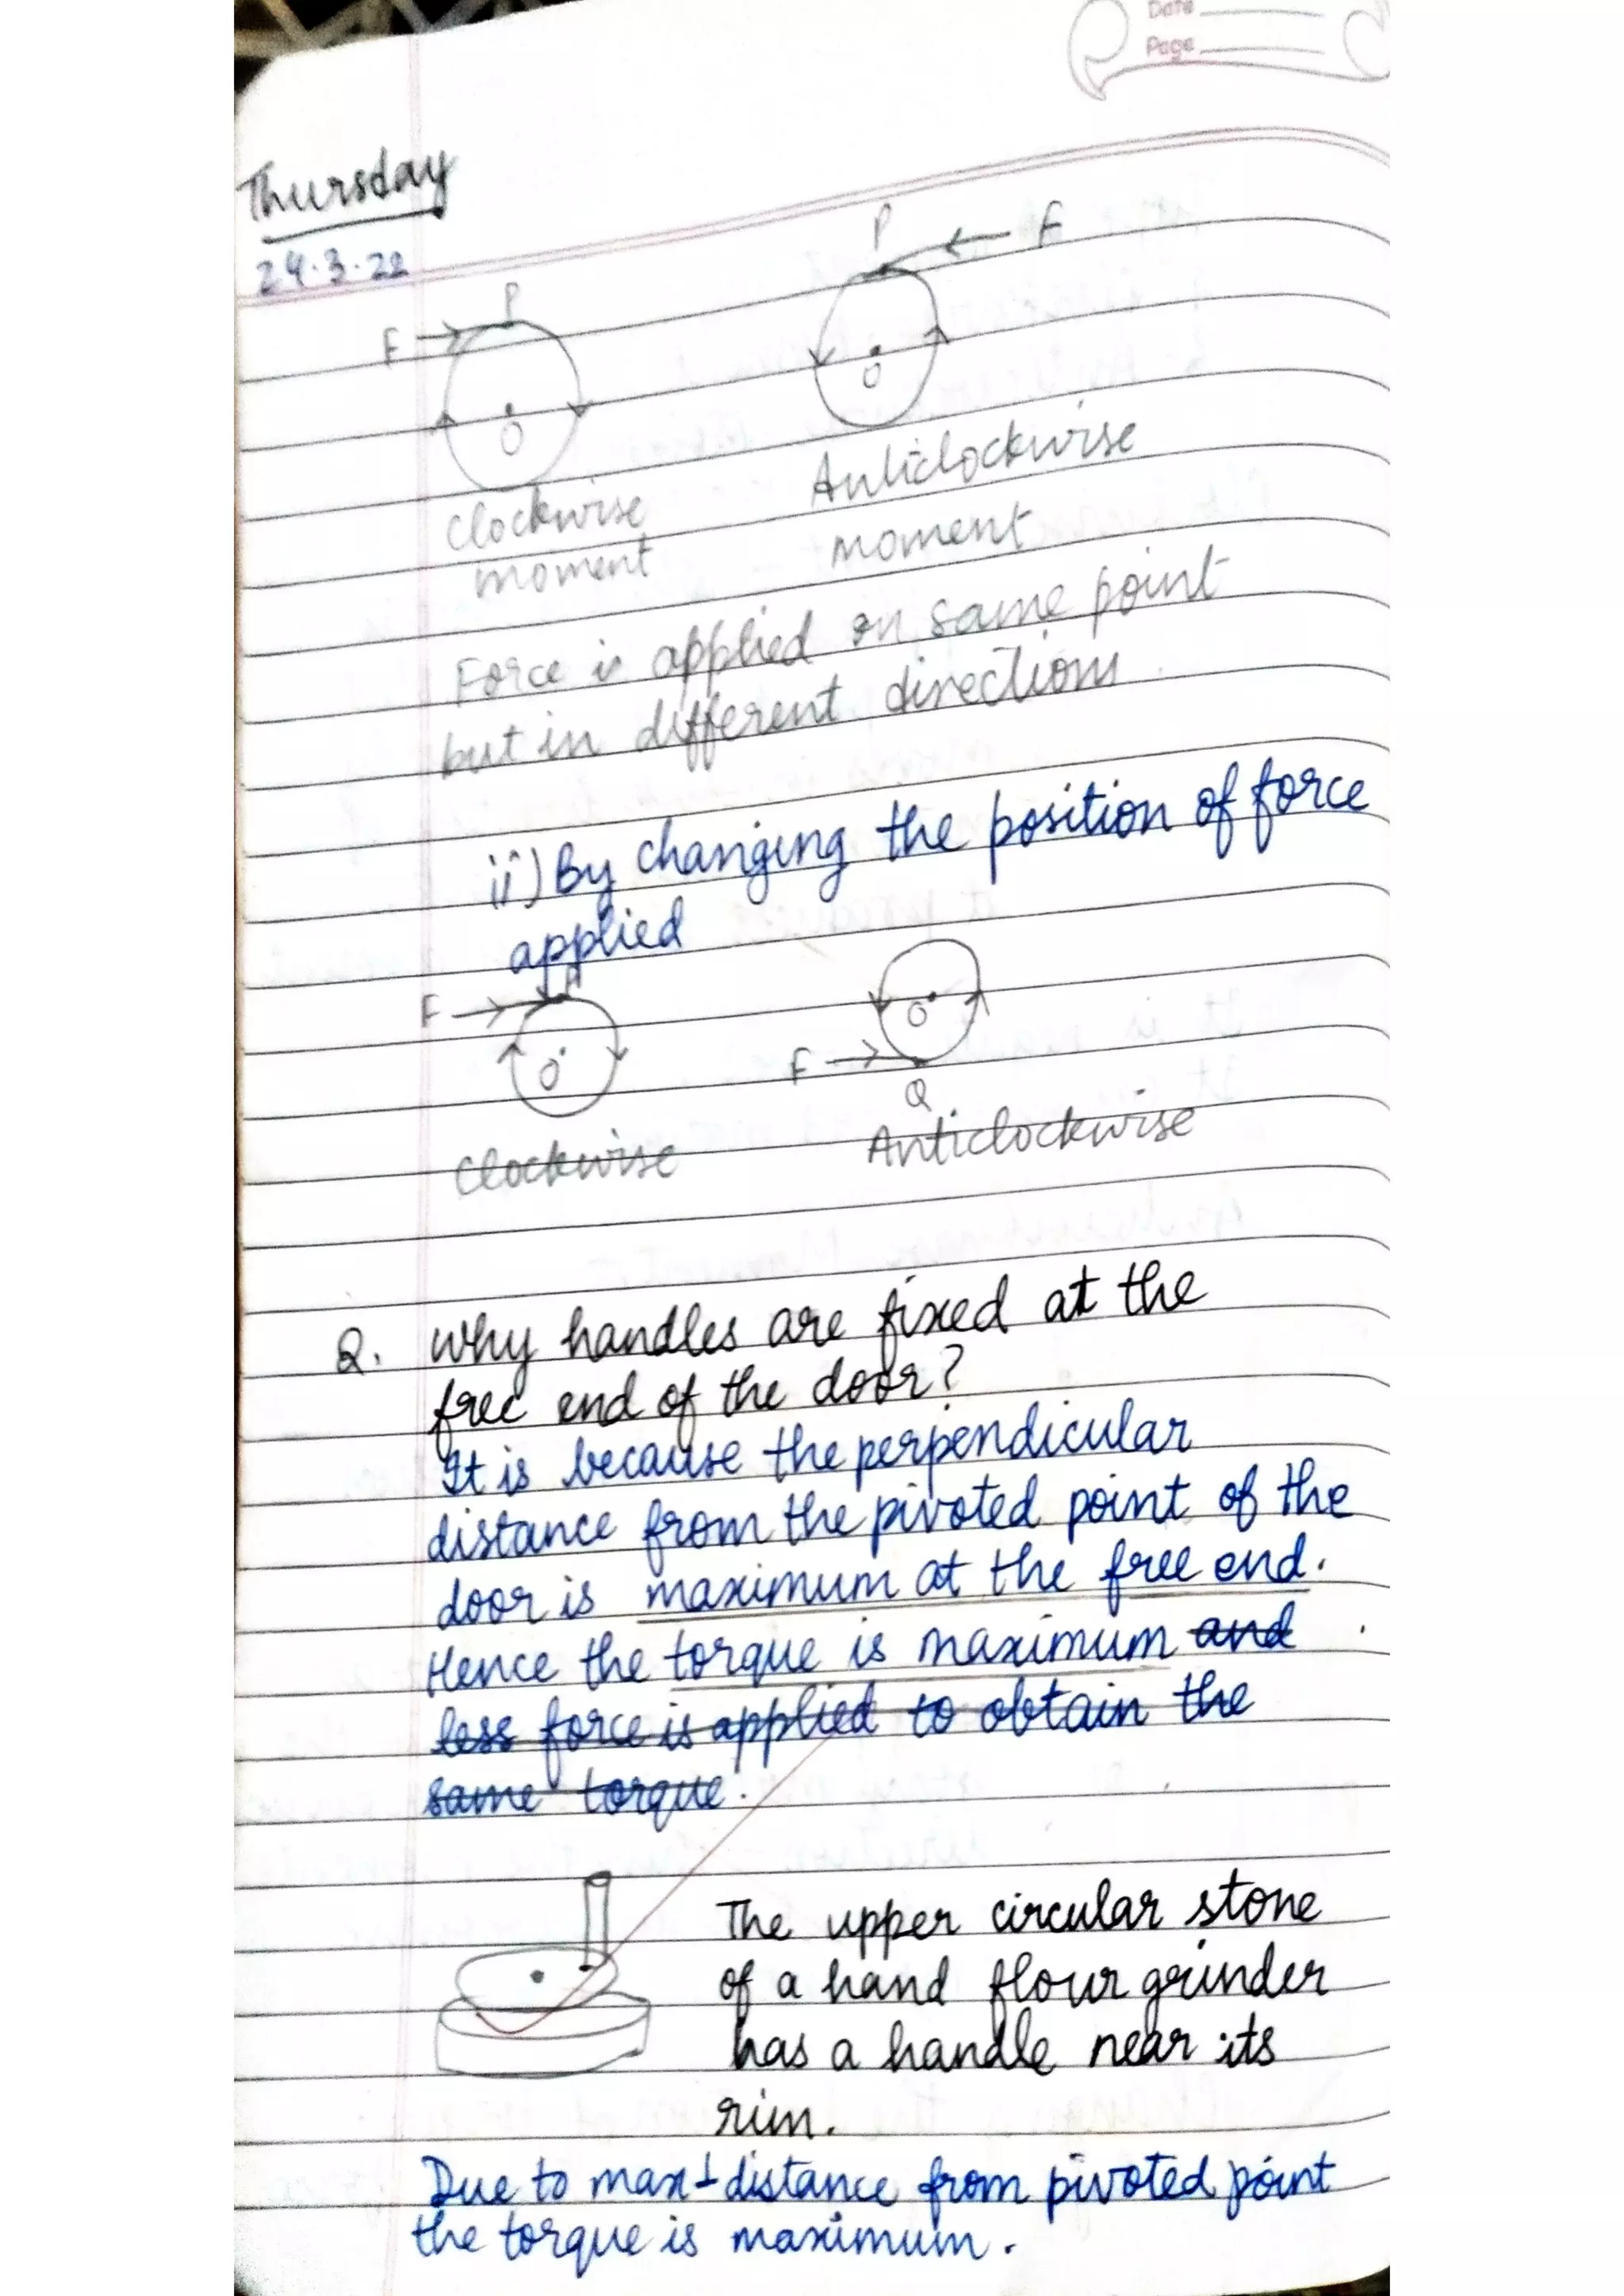 Date
Page
Thursday
24.3.22
P
F
O
Clockwise
moment
P
F
O
Anticlockwise
moment
Force is applied on same point
but in different directions
ii) By changing the position of force
applied
F
O
Clockwise
O
F
Q
Anticlockwise
Q. Why handles are fixed at the
free end of the door?
It is because the perpendicular
distance from the pivoted point of the
door is maximum at the free end.
Hence the torque is maximum and
less force is applied to obtain the
same torque.
The upper circular stone
of a hand flour grinder
has a handle near its
rim.
Due to max ⊥ distance from pivoted point
the torque is maximum.